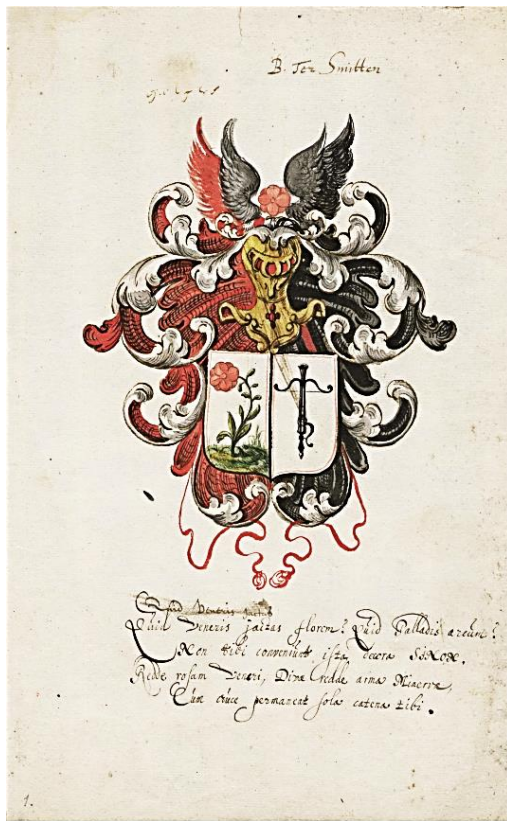 B. Ter Smitten
Quid Veneris
Quid Veneris jactas florem? Quid Palladis arcum?
Non tibi conveniunt ista decora SINON.
Redde rosam Veneri, Divæ redde arma Minervæ,
Cum cruce permaneat sola catena tibi.
1.